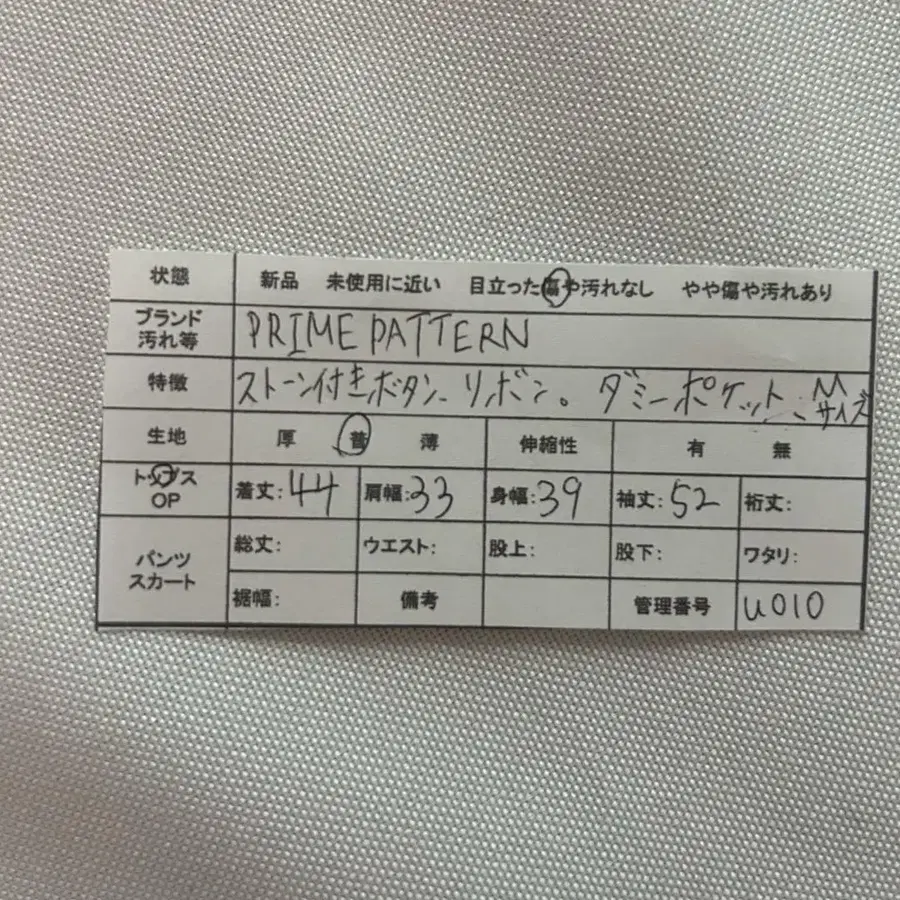 状態 新品 未使用に近い 目立った傷や汚れなし やや傷や汚れあり
ブランド
汚れ等 PRIME PATTERN
特徴 ストーン付きボタン、リボン。ダミーポケット、Mサイズ
生地 厚 普 薄 伸縮性 有 無
トップス
OP 着丈:44 肩幅:33 身幅:39 袖丈:52 裄丈:
パンツ
スカート 総丈: ウエスト: 股上: 股下: ワタリ:
裾幅: 備考 管理番号 u010